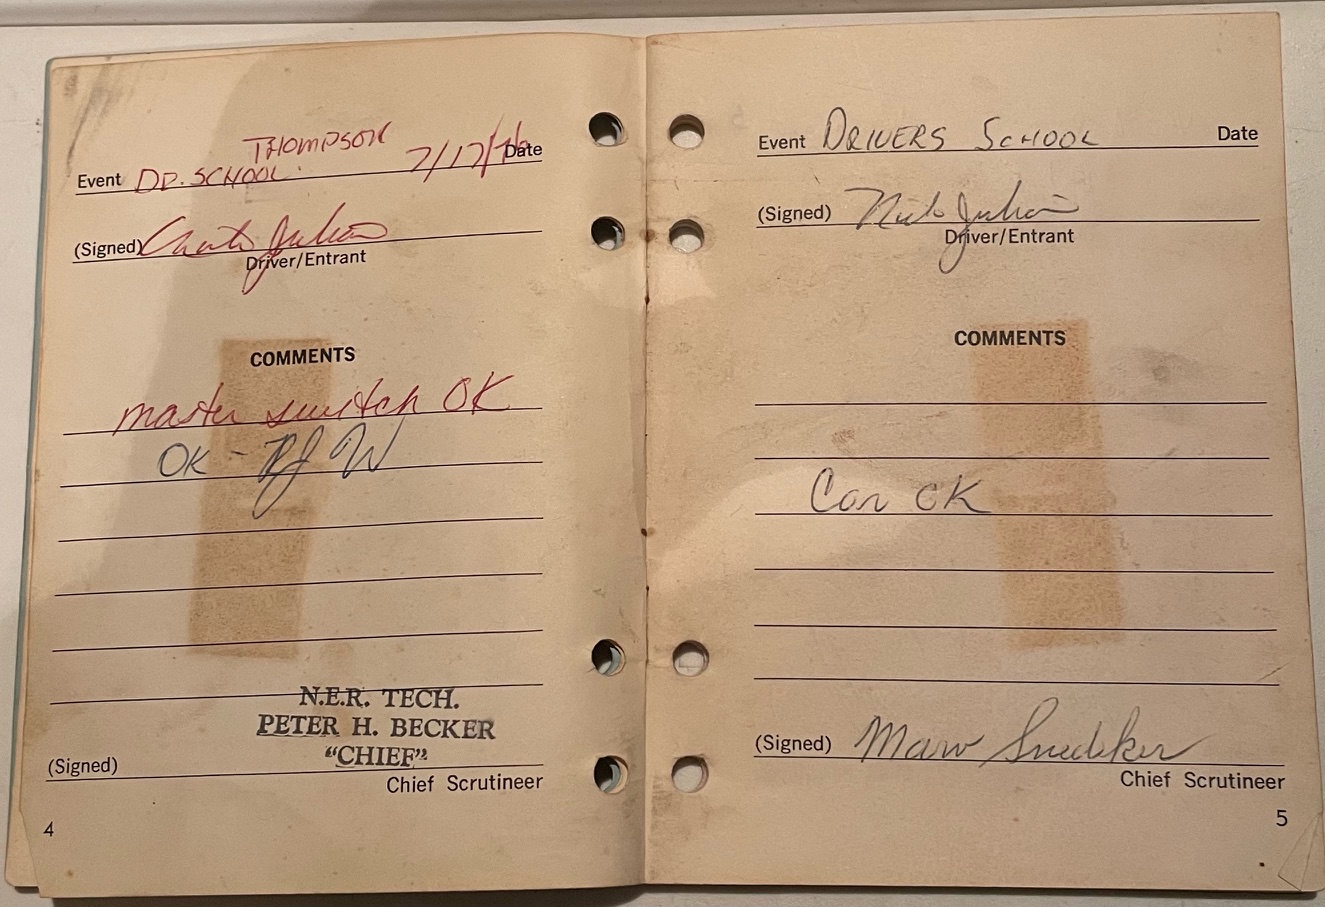 THOMPSON
Event DR. SCHOOL 7/17/76 Date
(Signed) Julian
Driver/Entrant
COMMENTS
master switch OK
OK - RJW
N.E.R. TECH.
PETER H. BECKER
"CHIEF"
(Signed)
Chief Scrutineer
4
Event DRIVERS SCHOOL Date
(Signed) Julian
Driver/Entrant
COMMENTS
Car OK
(Signed) Marv Snedeker
Chief Scrutineer
5